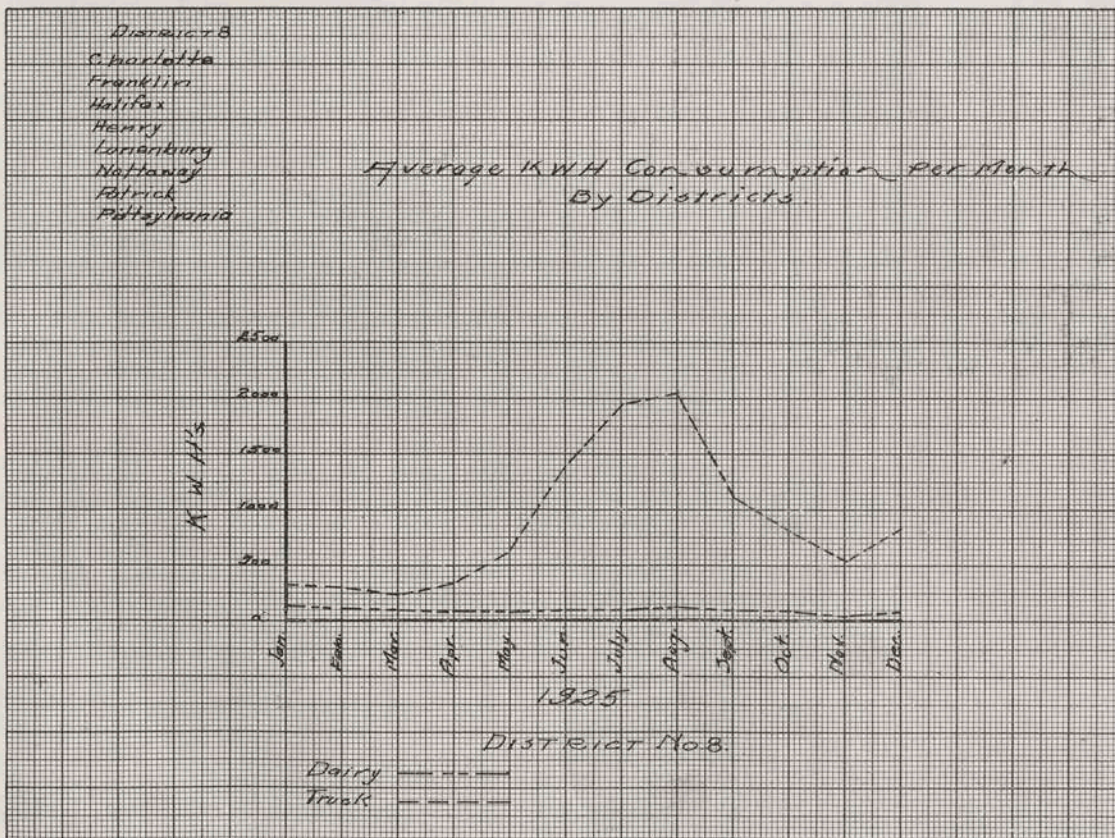 DISTRICT 8
Charlotte
Franklin
Halifax
Henry
Lunenburg
Nottaway
Patrick
Pittsylvania
Average KWH Consumption Per Month
By Districts.
2500
2000
1500
1000
500
0
K W H's
Jan. Feb. Mar. Apr. May. Jun. July. Aug. Sept. Oct. Nov. Dec.
1925
DISTRICT No 8.
Dairy
Truck